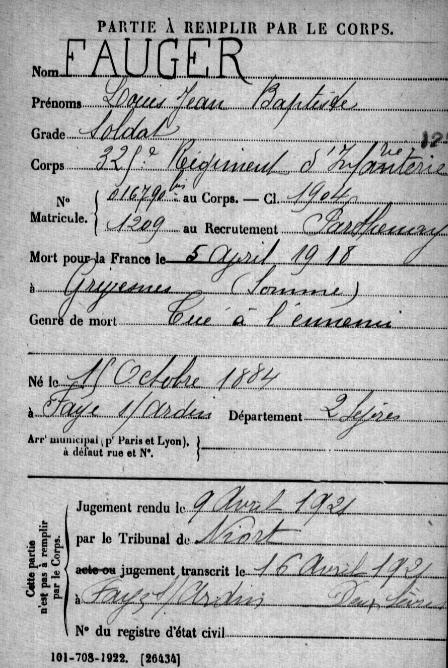 PARTIE À REMPLIR PAR LE CORPS.
Nom FAUGER
Prénoms Louis Jean Baptiste
Grade Soldat
Corps 325e Régiment d'Infanterie
N° Matricule. 016790 bis au Corps. — Cl. 1904
1209 au Recrutement Parthenay
Mort pour la France le 5 April 1918
à Grivesnes (Somme)
Genre de mort Tué à l'ennemi
Né le 15 Octobre 1884
à Faye s/Ardin Département 2 Sèvres
Arrt municipal (pr Paris et Lyon),
à défaut rue et N°.
Cette partie n'est pas à remplir par le Corps.
Jugement rendu le 9 Avril 1921
par le Tribunal de Niort
acte ou jugement transcrit le 16 Avril 1921
à Faye s/Ardin Deux Sèvres
N° du registre d'état civil
101-708-1922. [26434]